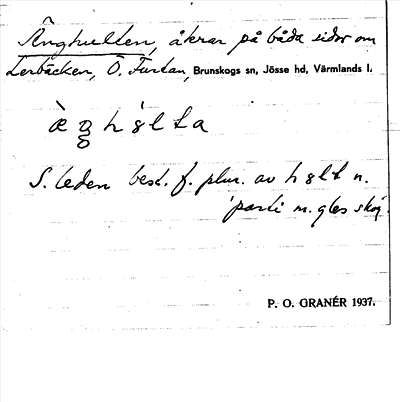 Änghulten, åkrar på båda sidor om
Lerbäcken, Ö. Furtan, Brunskogs sn, Jösse hd, Värmlands l.
S. leden best. f. plur. av hslt n.
'parti m. gles skog'.
P. O. GRANÉR 1937.